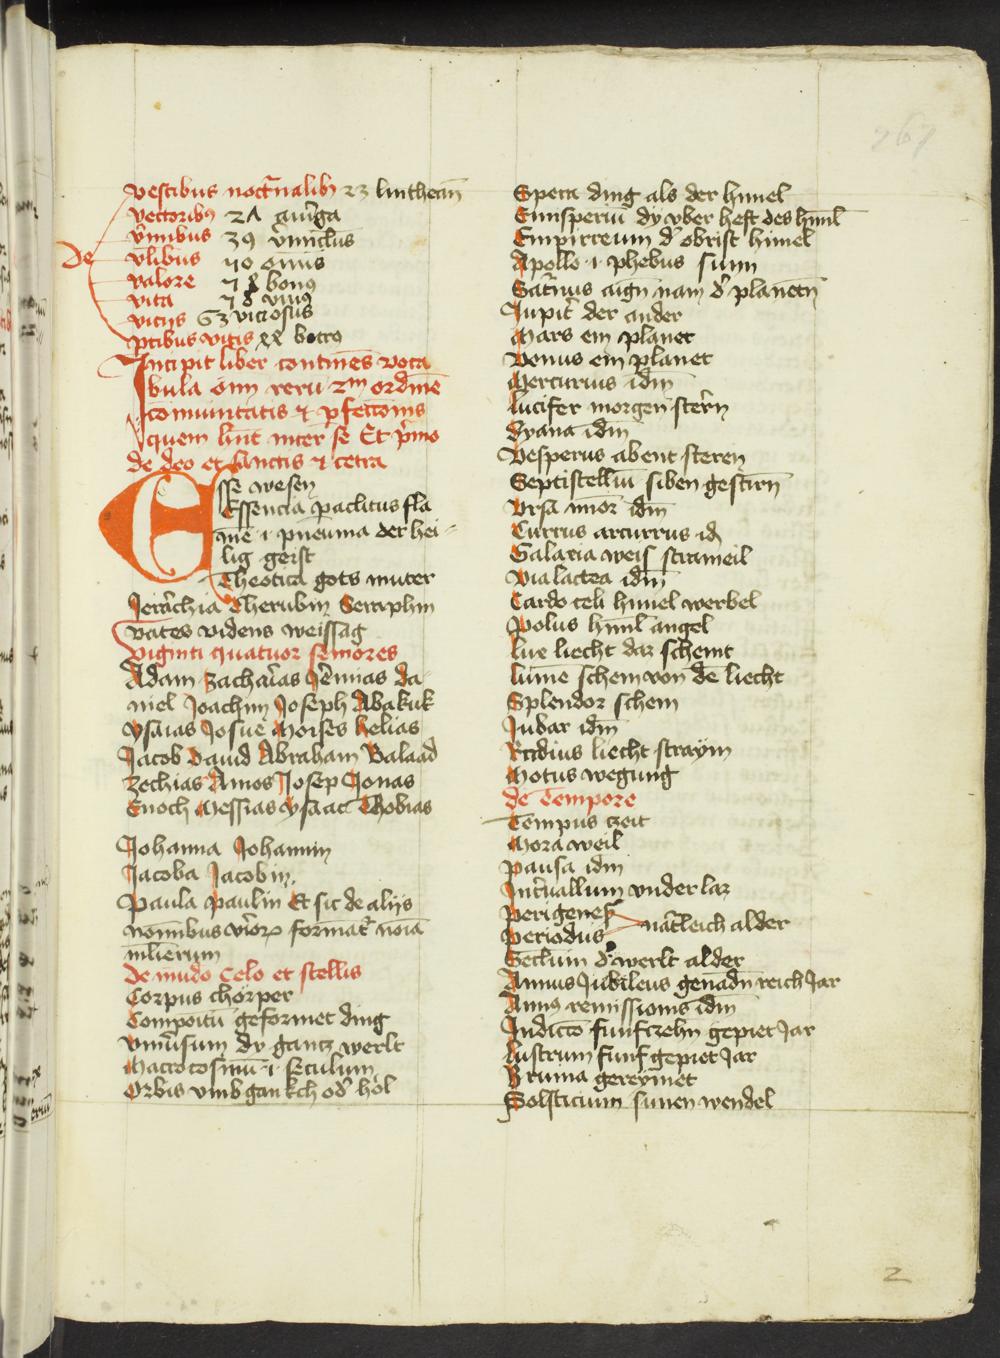 vestibus noct̄nalib9 23 lintheam̄
vectoribus 2Λ auriga
v̄mibus 39 v̄miclus
De vilibus 70 omis
valore 78 bonus
vita 78 vinus
vicijs 63 viciosus
ptibus vitis xx botrus
Incipit liber continēs voca
bula om̄ rerū 2m ordinē
com̄unitatis et pfectionis
quem hn̄t inter se Et p̄mo
de deo et sanctis et cetra
Esse wesen
Essencia paclitus fla
men i pneuma der hei-
lig geist
Theotica gots muter
Jerarchia Cherubin Seraphin
vates videns weissag
viginti quatuor seniores
Adam zacharias Jeremias da
niel Joachim Joseph Abakuk
ysaias Josue Moises helias
Jacob Dauid Abraham Balaad
zechias Amos Josep Jonas
Enoch Messias ysaac Thobias
Johanna Johannin
Jacoba Jacobin
Paula Paulin Et sic de alijs
nominibus viror formant noīa
mulierum
De mūdo Celo et stellis
Corpus chorper
Compoitū geformet ding
vniūsum dy gantz werlt
Macrocosmū i seculum
Orbis vmbgankch od hol
Spera ding als der himel
Emisperiū dy vber heft des himl
Empirreum d obrist himel
Apollo i phebus sunn
Satnus aign nam d planetn
Jupit der ander
Mars ein planet
Venus ein planet
Mercurius idm
lucifer morgen stern
dyana idm
Vesperus abent steren
Septistelliū siben gestirn
vrsa minor idm
Currus arcurrus id
Galaxia weis strameil
via lactea idm
Cardo celi himel werbel
Polus himl angel
lux liecht daz scheint
lumē schein von dē liecht
Splendor schein
Jubar idm
Radius liecht straym
Motus wegung
de Tempore
Tempus czeit
Mora weil
pausa idm
Intuallum vnderlaz
perigenes
periodus natleich alder
Seclum d werlt alder
Annus Jubileus genadn reich Jar
Annus remissionis idm
Jndicto funfczehn gepiet Jar
lustrum funf gepiet Jar
Bruma gereymet
Solsticium sunen wendel
767
2